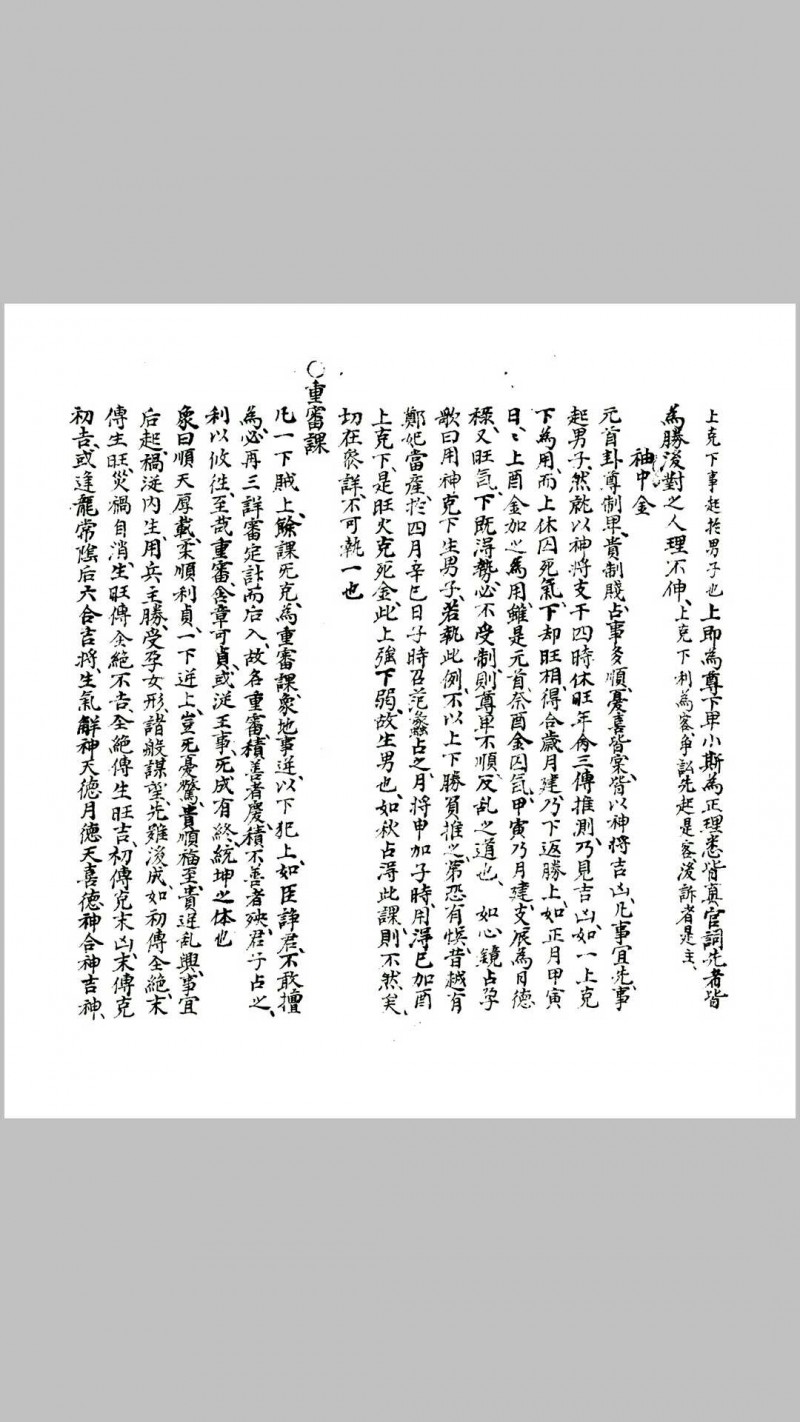 上克下事起於男子也上即為尊下卑小斯為正理悉皆真官詞先者皆
為勝後對之人理不伸上克下利為客爭訟先起是客後訴者是主
袖中金
元首卦尊制卑貴制賤占事多順憂喜皆案皆以神將吉凶凡事宜先事
起男子然就以神將支干四時休旺年命三傳推測乃見吉凶如一上克
下為用而上休囚死氣下却旺相得合歲月建乃下返勝上如正月甲寅
日〻上酉金加之為用雖是元首奈酉金囚氣甲寅乃月建支辰為日德
祿又旺氣下既得勢必不受制則尊卑不順反乱之道也如心鏡占孕
歌曰用神克下生男子若執此例不以上下勝負推之第恐有悞昔越有
鄭妃當產於四月辛巳日子時召范蠡占之月將申加子時用得巳加酉
上克下是旺火克死金此上強下弱故生男也如秋占得此課則不然矣
切在參詳不可執一也
○重審課
凡一下賊上餘課死克為重審課象地事逆以下犯上如臣諍君不敢擅
為必再三詳審定計而后入故名重審積善者慶積不善者殃君子占之
利以攸往至哉重審含章可貞或從王事死成有終統坤之体也
象曰順天厚載柔順利貞一下逆上豈死憂驚貴順福至貴逆乱興事宜
后起禍從內生用兵主勝受孕女形諸般謀望先難後成如初傳全絕末
傳生旺災禍自消生旺傳全絕不吉全絕傳生旺吉初傳兇末凶末傳克
初吉或逢龍常陰后六合吉將生氣解神天德月德天喜德神合神吉神